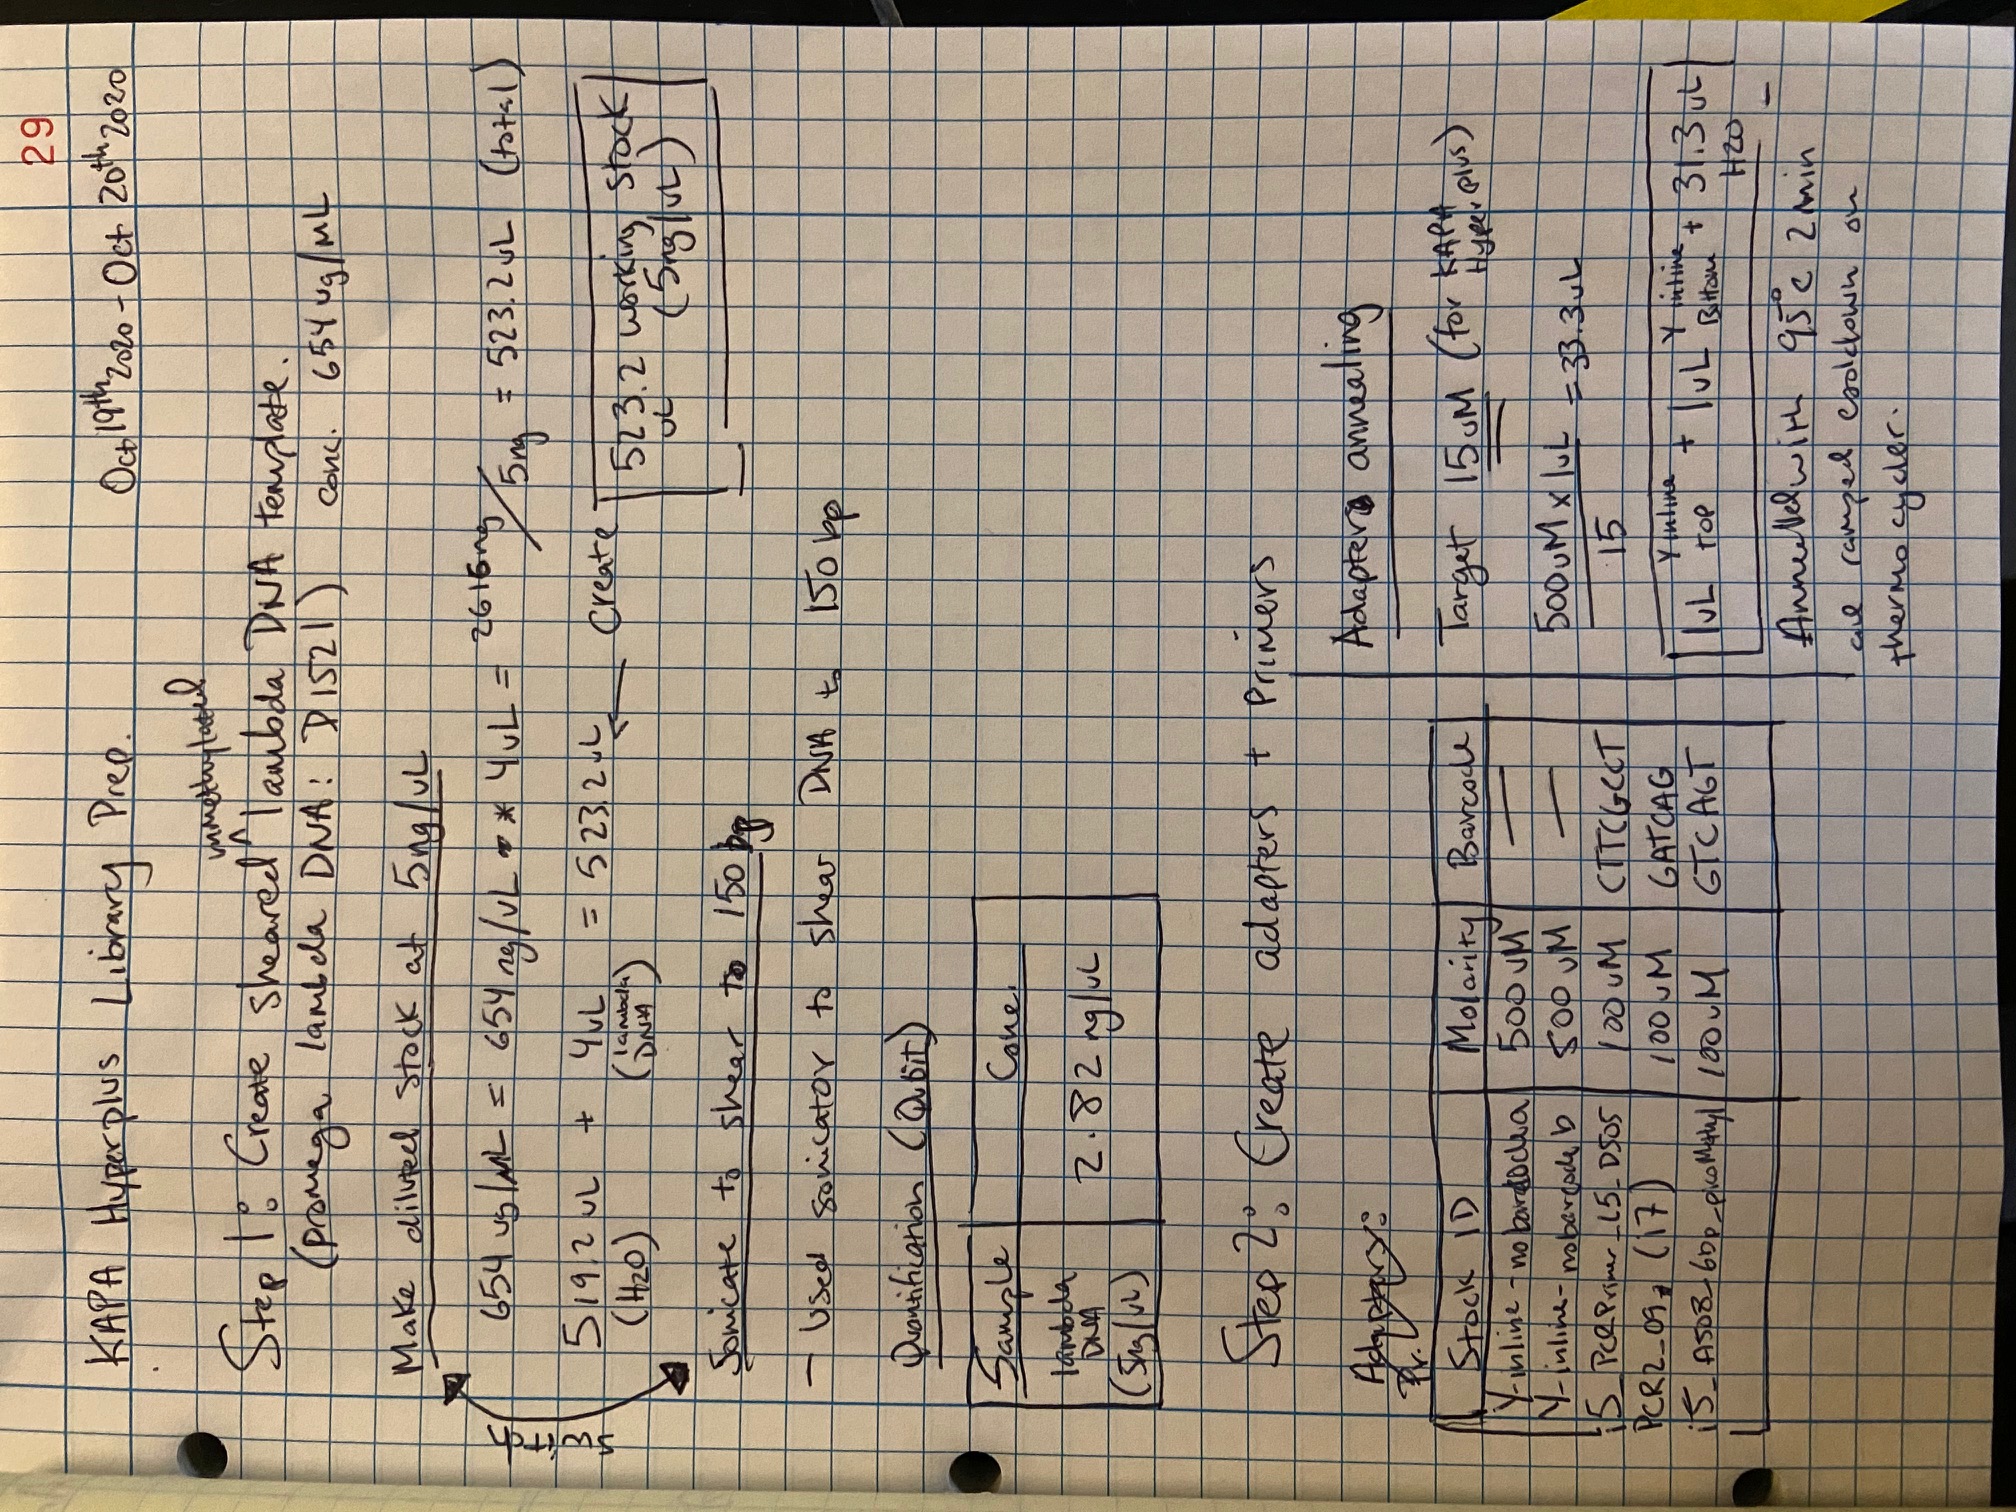 29
KAPA Hyperplus Library Prep.
Oct 19th 2020 - Oct 20th 2020
unmethylated
Step 1: Create sheared ^ lambda DNA template.
(promega lambda DNA: D1521) conc. 654 ug/mL
Make diluted stock at 5ng/uL
switch
654 ug/mL = 654 ng/uL * 4uL = 2616ng / 5ng = 523.2 uL (total)
519.2 uL + 4uL = 523.2 uL ← create
(H2O) (lambda DNA)
523.2 uL working stock
(5ng/uL)
Sonicate to shear to 150 bp
- Used sonicator to shear DNA to 150 bp
Quantification (Qubit)
Sample Conc.
lambda
DNA
(5ng/uL)
2.82 ng/uL
Step 2: Create adapters + primers
Adapters:
Pr.
Stock ID Molarity Barcode
Y-inline-nobarcode a 500 uM —
Y-inline-nobarcode b 500 uM —
i5_PCRPrimer_L5_D505 100 uM CTTCGCCT
PCR2_09 (i7) 100 uM GATCAG
i5_A508_6bp_picoMethyl 100 uM GTCAGT
Adapter annealing
Target 15uM (for KAPA Hyperplus)
500uM x 1uL
15
= 33.3 uL
1uL Y inline top + 1uL Y inline Bottom + 31.3 uL H2O
Annealled with 95°c 2 min
ramped cooldown on
thermocycler.